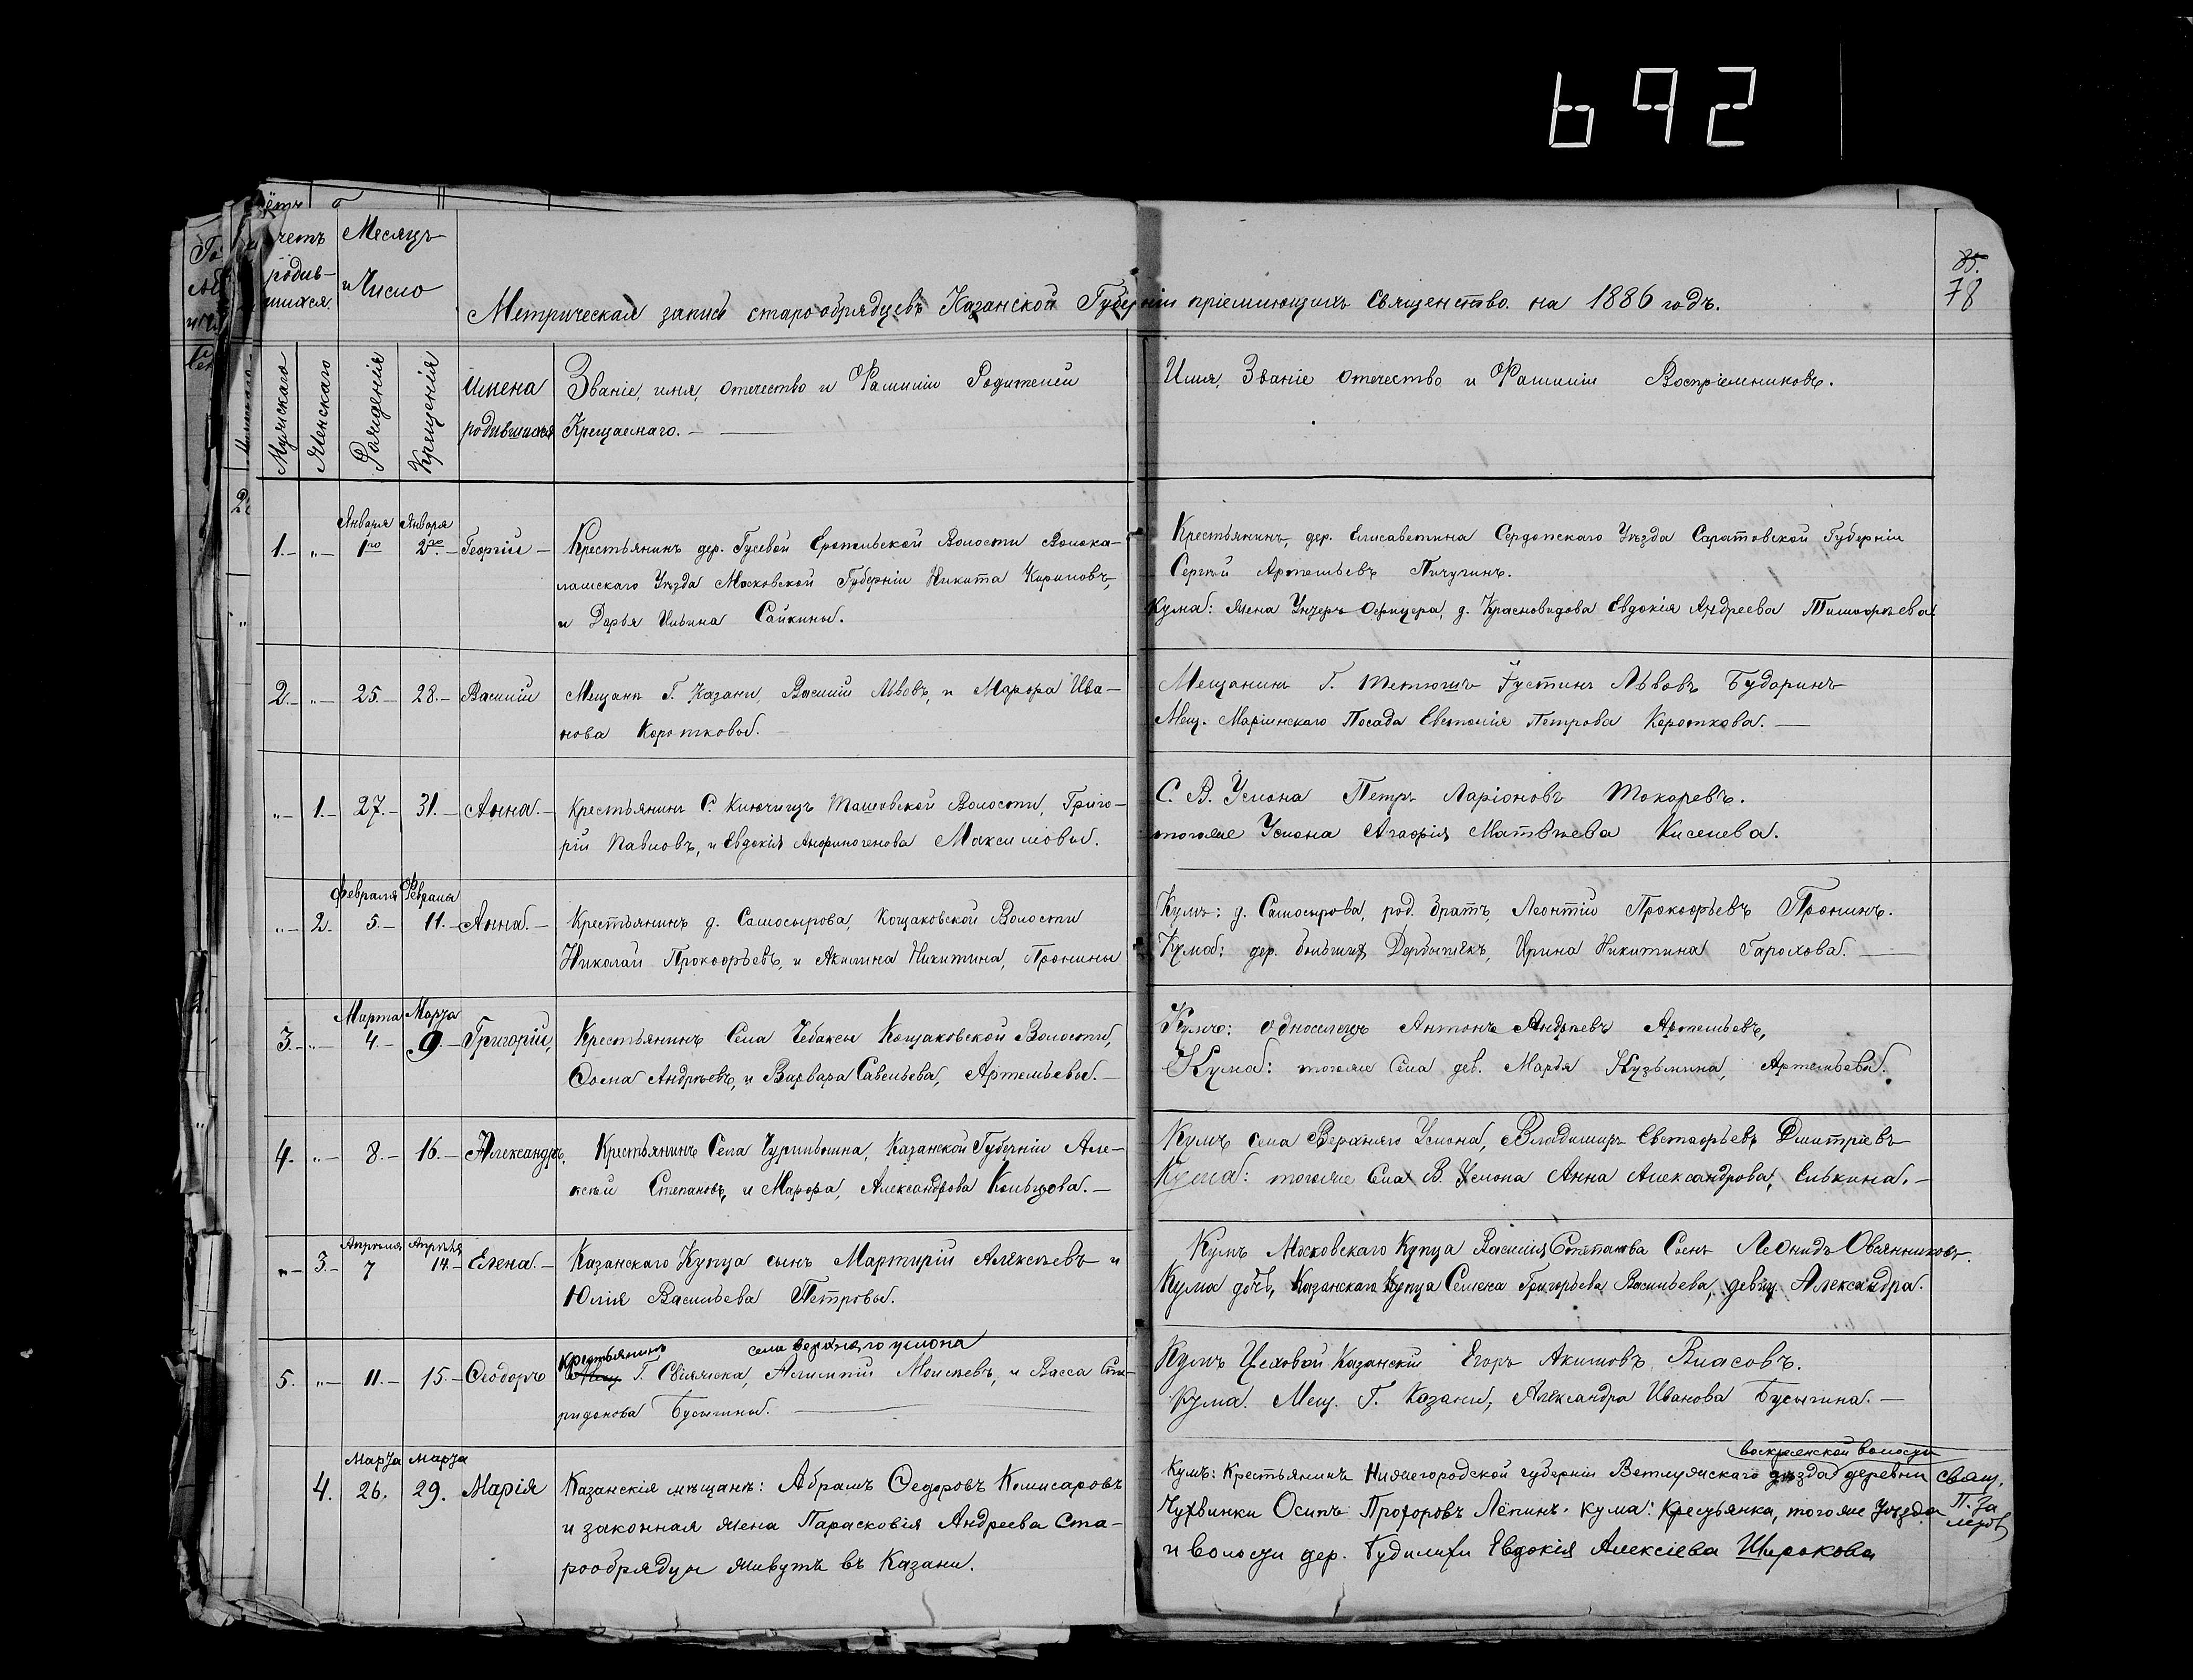 692
четъ
родив-
шихся.
Месяцъ
и Число
Метрическая запись старообрядцевъ Казанской Губерніи пріемлющихъ Священство. на 1886 годъ.
85.
78
Мужскаго
Женскаго
Рожденія
Крещенія
Имена
родившихся
Званіе, имя, отечество и Фамилія Родителей
Крещаемаго. —
Имя, Званіе отечество и Фамилія Воспріемниковъ.
Января Января
1. — „ — 1го 2го. — Георгій —
Крестьянинъ дер. Гусевой Еропольской Волости Волока-
ламскаго Уѣзда Московской Губерніи Никита Кириловъ,
и Дарья Ильина Сайкины.
Крестьянинъ, дер. Елисаветина Сердопскаго Уѣзда Саратовской Губерніи
Сергѣй Артемьевъ Пичугинъ.
Кума: жена Унтеръ Офицера, д. Красновидова Евдокія Андреева Тимофѣева.
2. — „ — 25. — 28. — Василій
Мещане Г. Казани, Василій Львовъ, и Марфа Ива-
нова Коротковы.
Мещанинъ Г. Тетюшъ Густинъ Львовъ Бударинъ
Мещ. Маріинскаго Посада Евгенія Петрова Короткова. —
„ — 1. — 27. — 31. — Анна. —
Крестьянинъ С. Ключищъ Ташевской Волости, Григо-
рій Павловъ, и Евдокія Анфиногенова Максимовы.
С. В. Услона Петръ Ларіоновъ Токаревъ.
тогоже Услона Агафія Матвѣева Киселева.
Февраля Февраля
„ — 2. 5. — 11. — Анна. —
Крестьянинъ д. Самосырова, Кощаковской Волости
Николай Прокофьевъ, и Акилина Никитина, Пронины
Кумъ: д. Самосырова, род. братъ, Леонтій Прокофьевъ Пронинъ.
Кума: дер. большихъ Дербышекъ, Ирина Никитина Гарохова. —
Марта Марта
3. — „ — 4. — 9. — Григорій,
Крестьянинъ Села Чебаксы Кощаковской Волости,
Фома Андрѣевъ, и Варвара Савельева, Артемьевы. —
Кумъ: односелецъ Антонъ Андрѣевъ Артемьевъ,
Кума: тогоже Села дев. Марья Кузьмина, Артемьева.
4. „ — 8. — 16. — Александръ.
Крестьянинъ Села Чурилькина, Казанской Губерніи Але-
ксѣй Степановъ, и Марфа, Александрова Кольцова. —
Кумъ села Верхняго Услона, Владимиръ Евстафьевъ Дмитріевъ
Кума: тогоже Села В. Услона Анна Александрова, Елькина. —
Апрѣля Апрѣля
„ — 3. — 7 14. — Елена. —
Казанскаго Купца сынъ Мартирій Алексѣевъ и
Юлія Васильева Петровы.
Кумъ Московскаго Купца Василія Степанова Сынъ Леонидъ Овсянниковъ.
Кума дочь, Казанскаго Купца Семена Григорьева Васильева, девиц. Александра.
5. „ — 11. — 15. — Ѳеодоръ
Крестьянинъ села верхняго услона
Мещ. Г. Свіяжска, Алимпій Моисѣевъ, и Васса Спи-
ридонова Бусыгины. —
Кумъ Цеховой Казанскій Егоръ Акимовъ Власовъ.
Кума. Мещ. Г. Казани, Александра Иванова Бусыгина. —
Марта марта
4. 26. 29. Марія
Казанскія мѣщане: Абрамъ Ѳедоровъ Комисаровъ
и законная жена Парасковія Андреева Ста-
рообрядцы живутъ въ Казани.
воскресенской волости
Кумъ: Крестьянинъ Нижегородской губерніи Ветлужскаго уѣзда деревни
Чухвинки Осипъ Прохоровъ Лёпинъ. кума: Крестьянка, тогоже Уѣзда
и волости дер. Будилихи Евдокія Алексіева Широкова
свящ.
П. За
летов